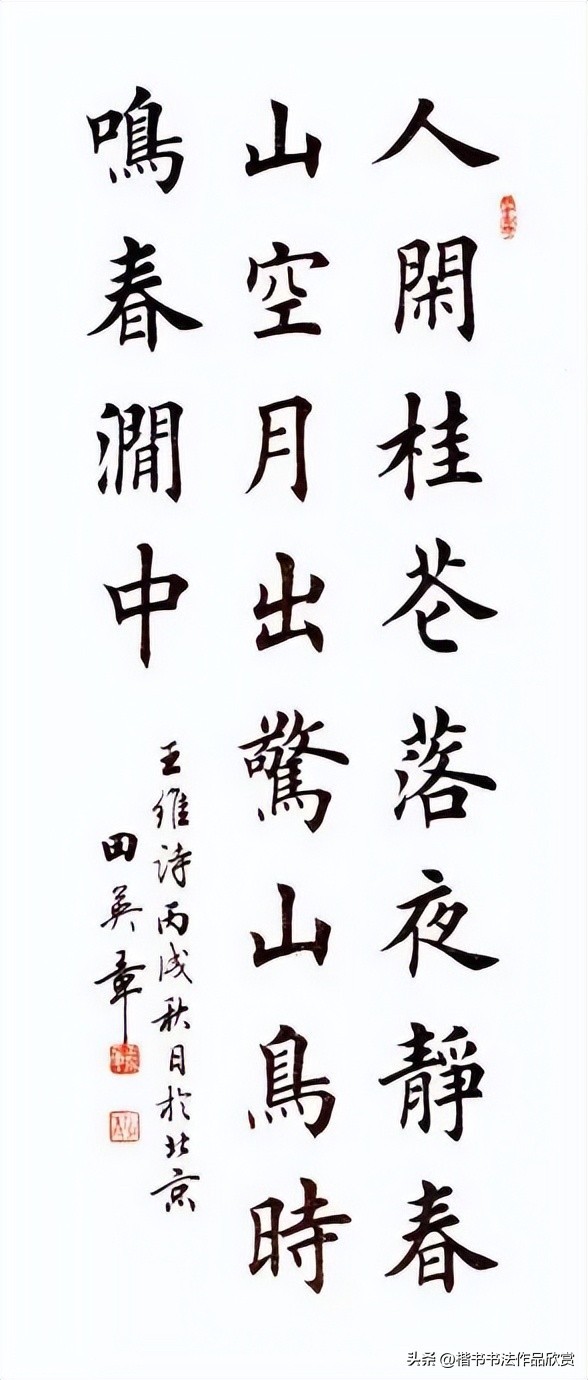 人閑桂花落夜靜春
山空月出驚山鳥時
鳴春澗中
王維詩丙戌秋月於北京
田英章
头条 @楷书书法作品欣赏